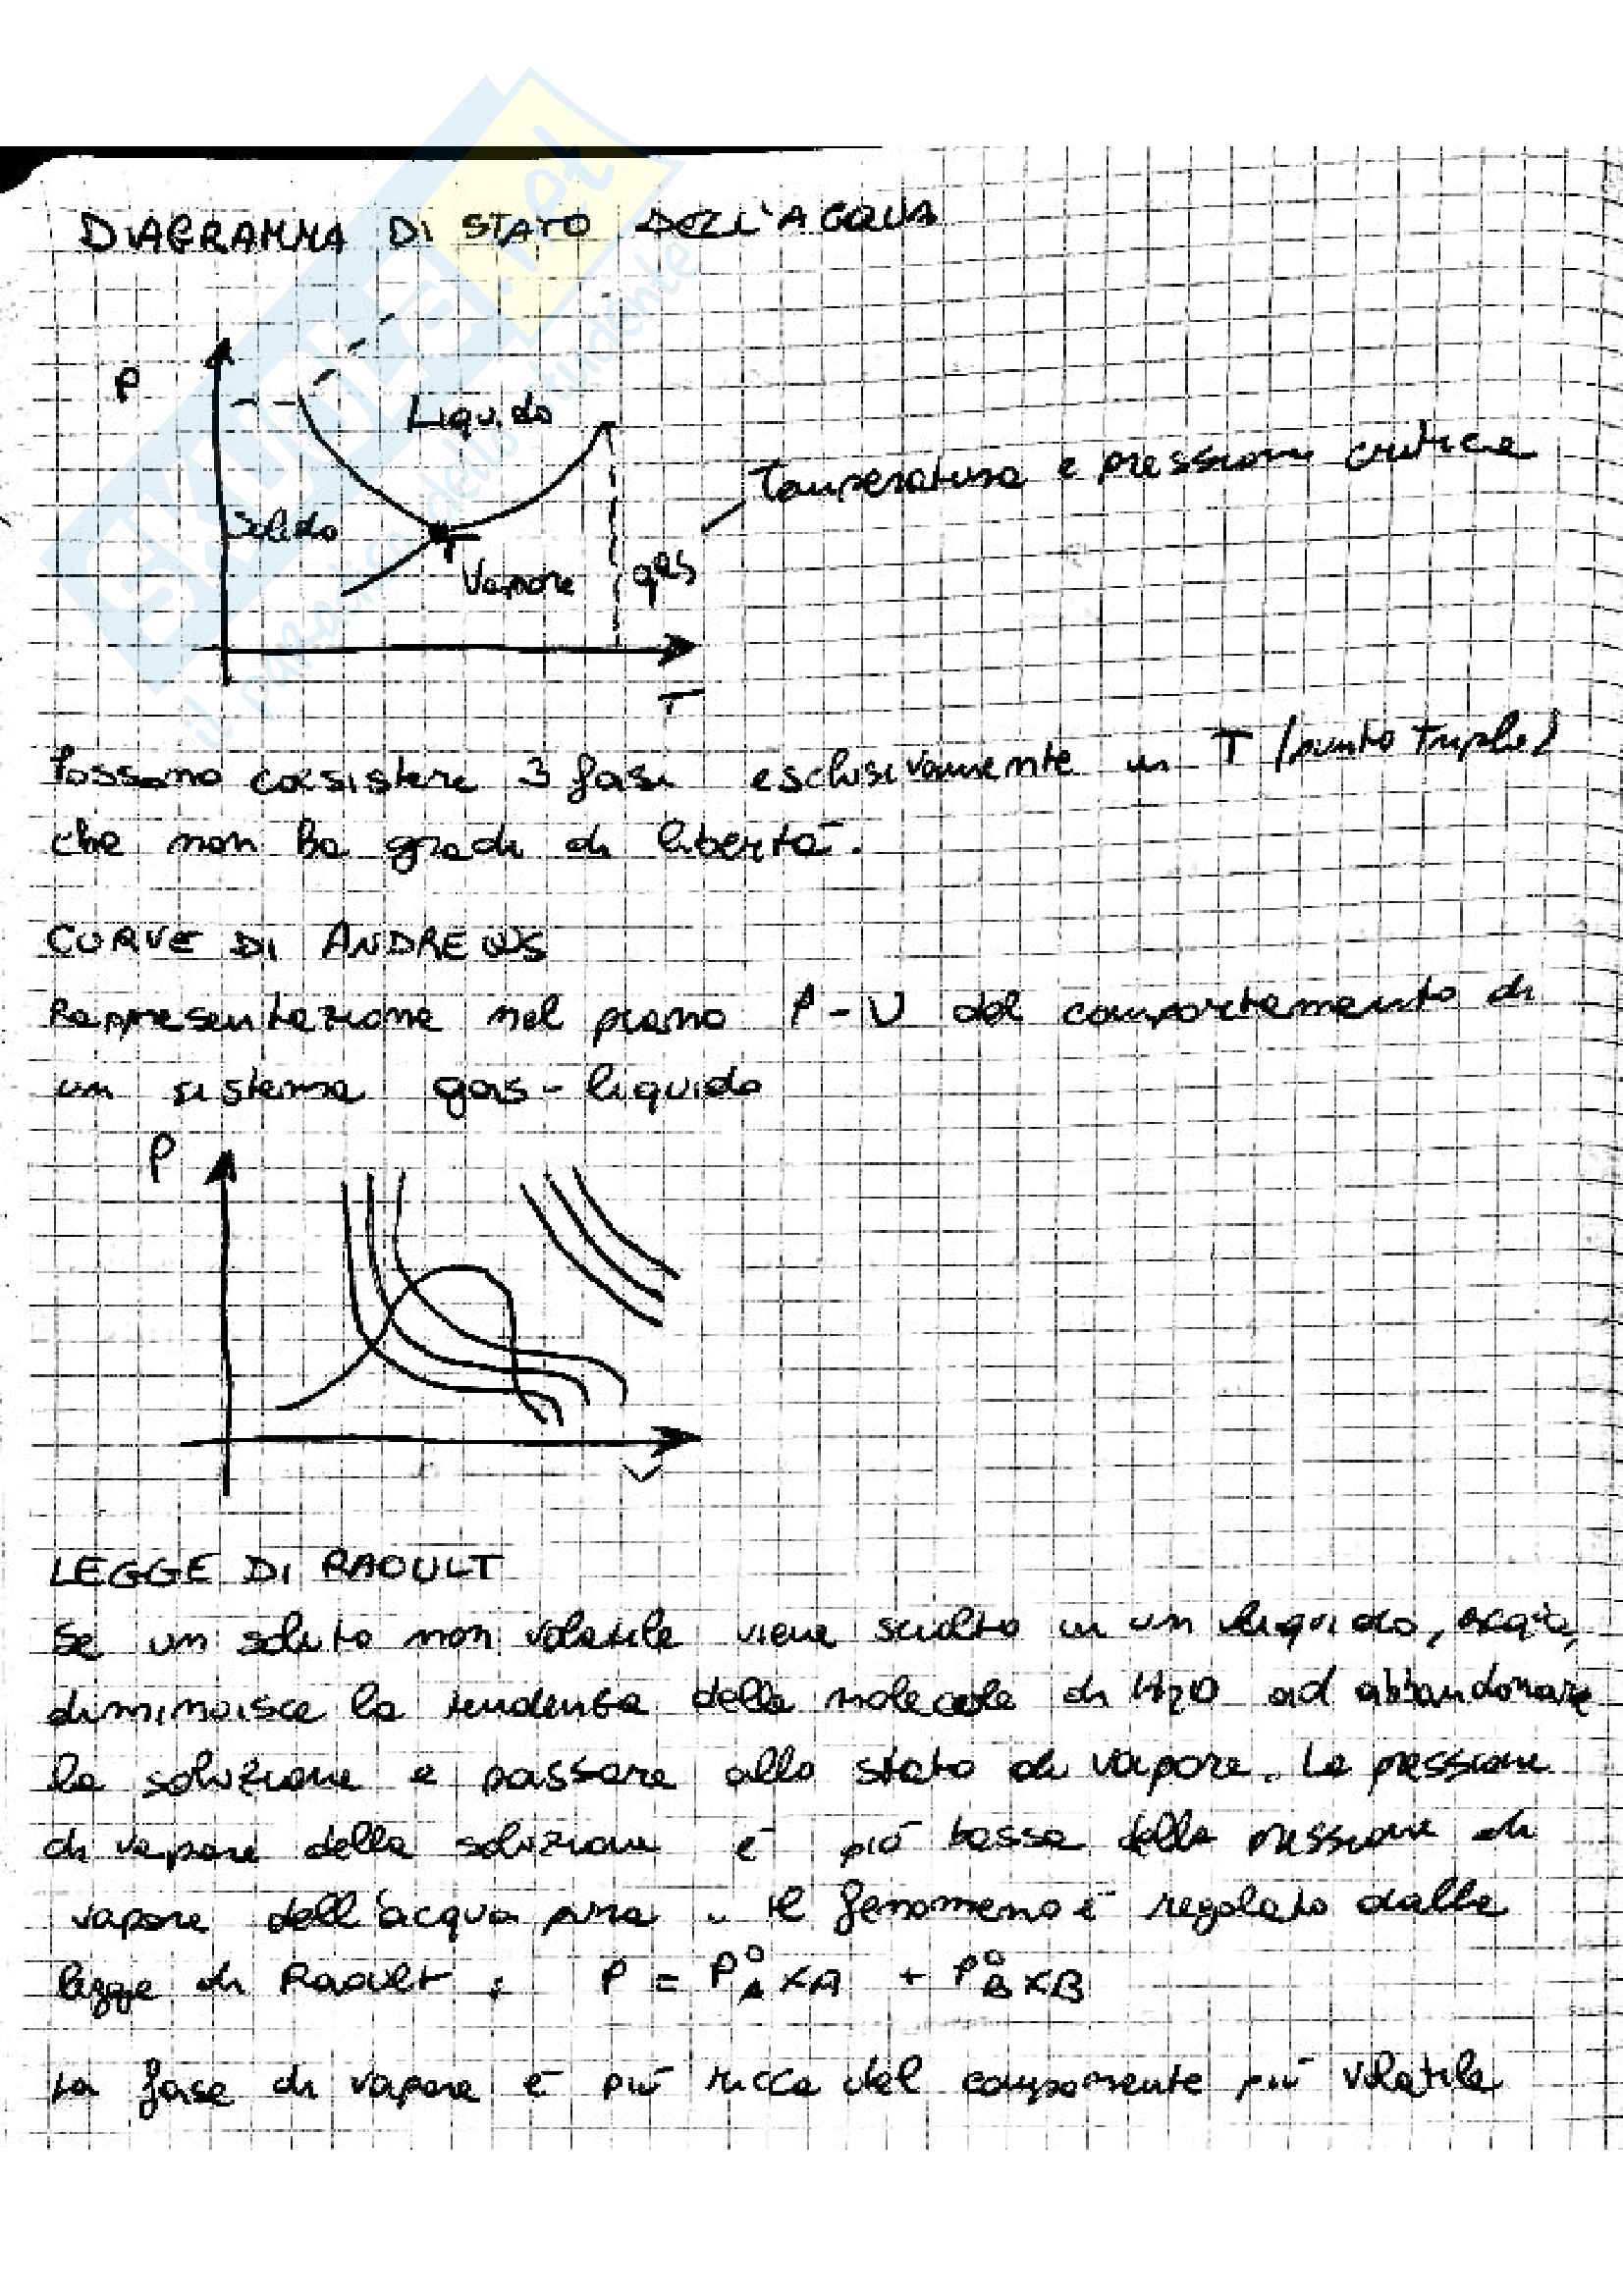 DIAGRAMMA DI STATO DELL'ACQUA
P
Liquido
Temperatura e pressione critica
Solido
T
Vapore
gas
T
Possono coesistere 3 fasi esclusivamente in T (punto triplo)
che non ha gradi di libertà.
CURVE DI ANDREWS
Rappresentazione nel piano P-V del comportamento di
un sistema gas-liquido
P
V
LEGGE DI RAOULT
Se un soluto non volatile viene sciolto in un liquido, acqua,
diminuisce la tendenza delle molecole di H2O ad abbandonare
la soluzione e passare allo stato di vapore. La pressione
di vapore della soluzione è più bassa della pressione di
vapore dell'acqua pura. Il fenomeno è regolato dalla
legge di Raoult: P = P°A XA + P°B XB
La fase di vapore è più ricca del componente più volatile
SKUOLA.net
il paradiso dello studente